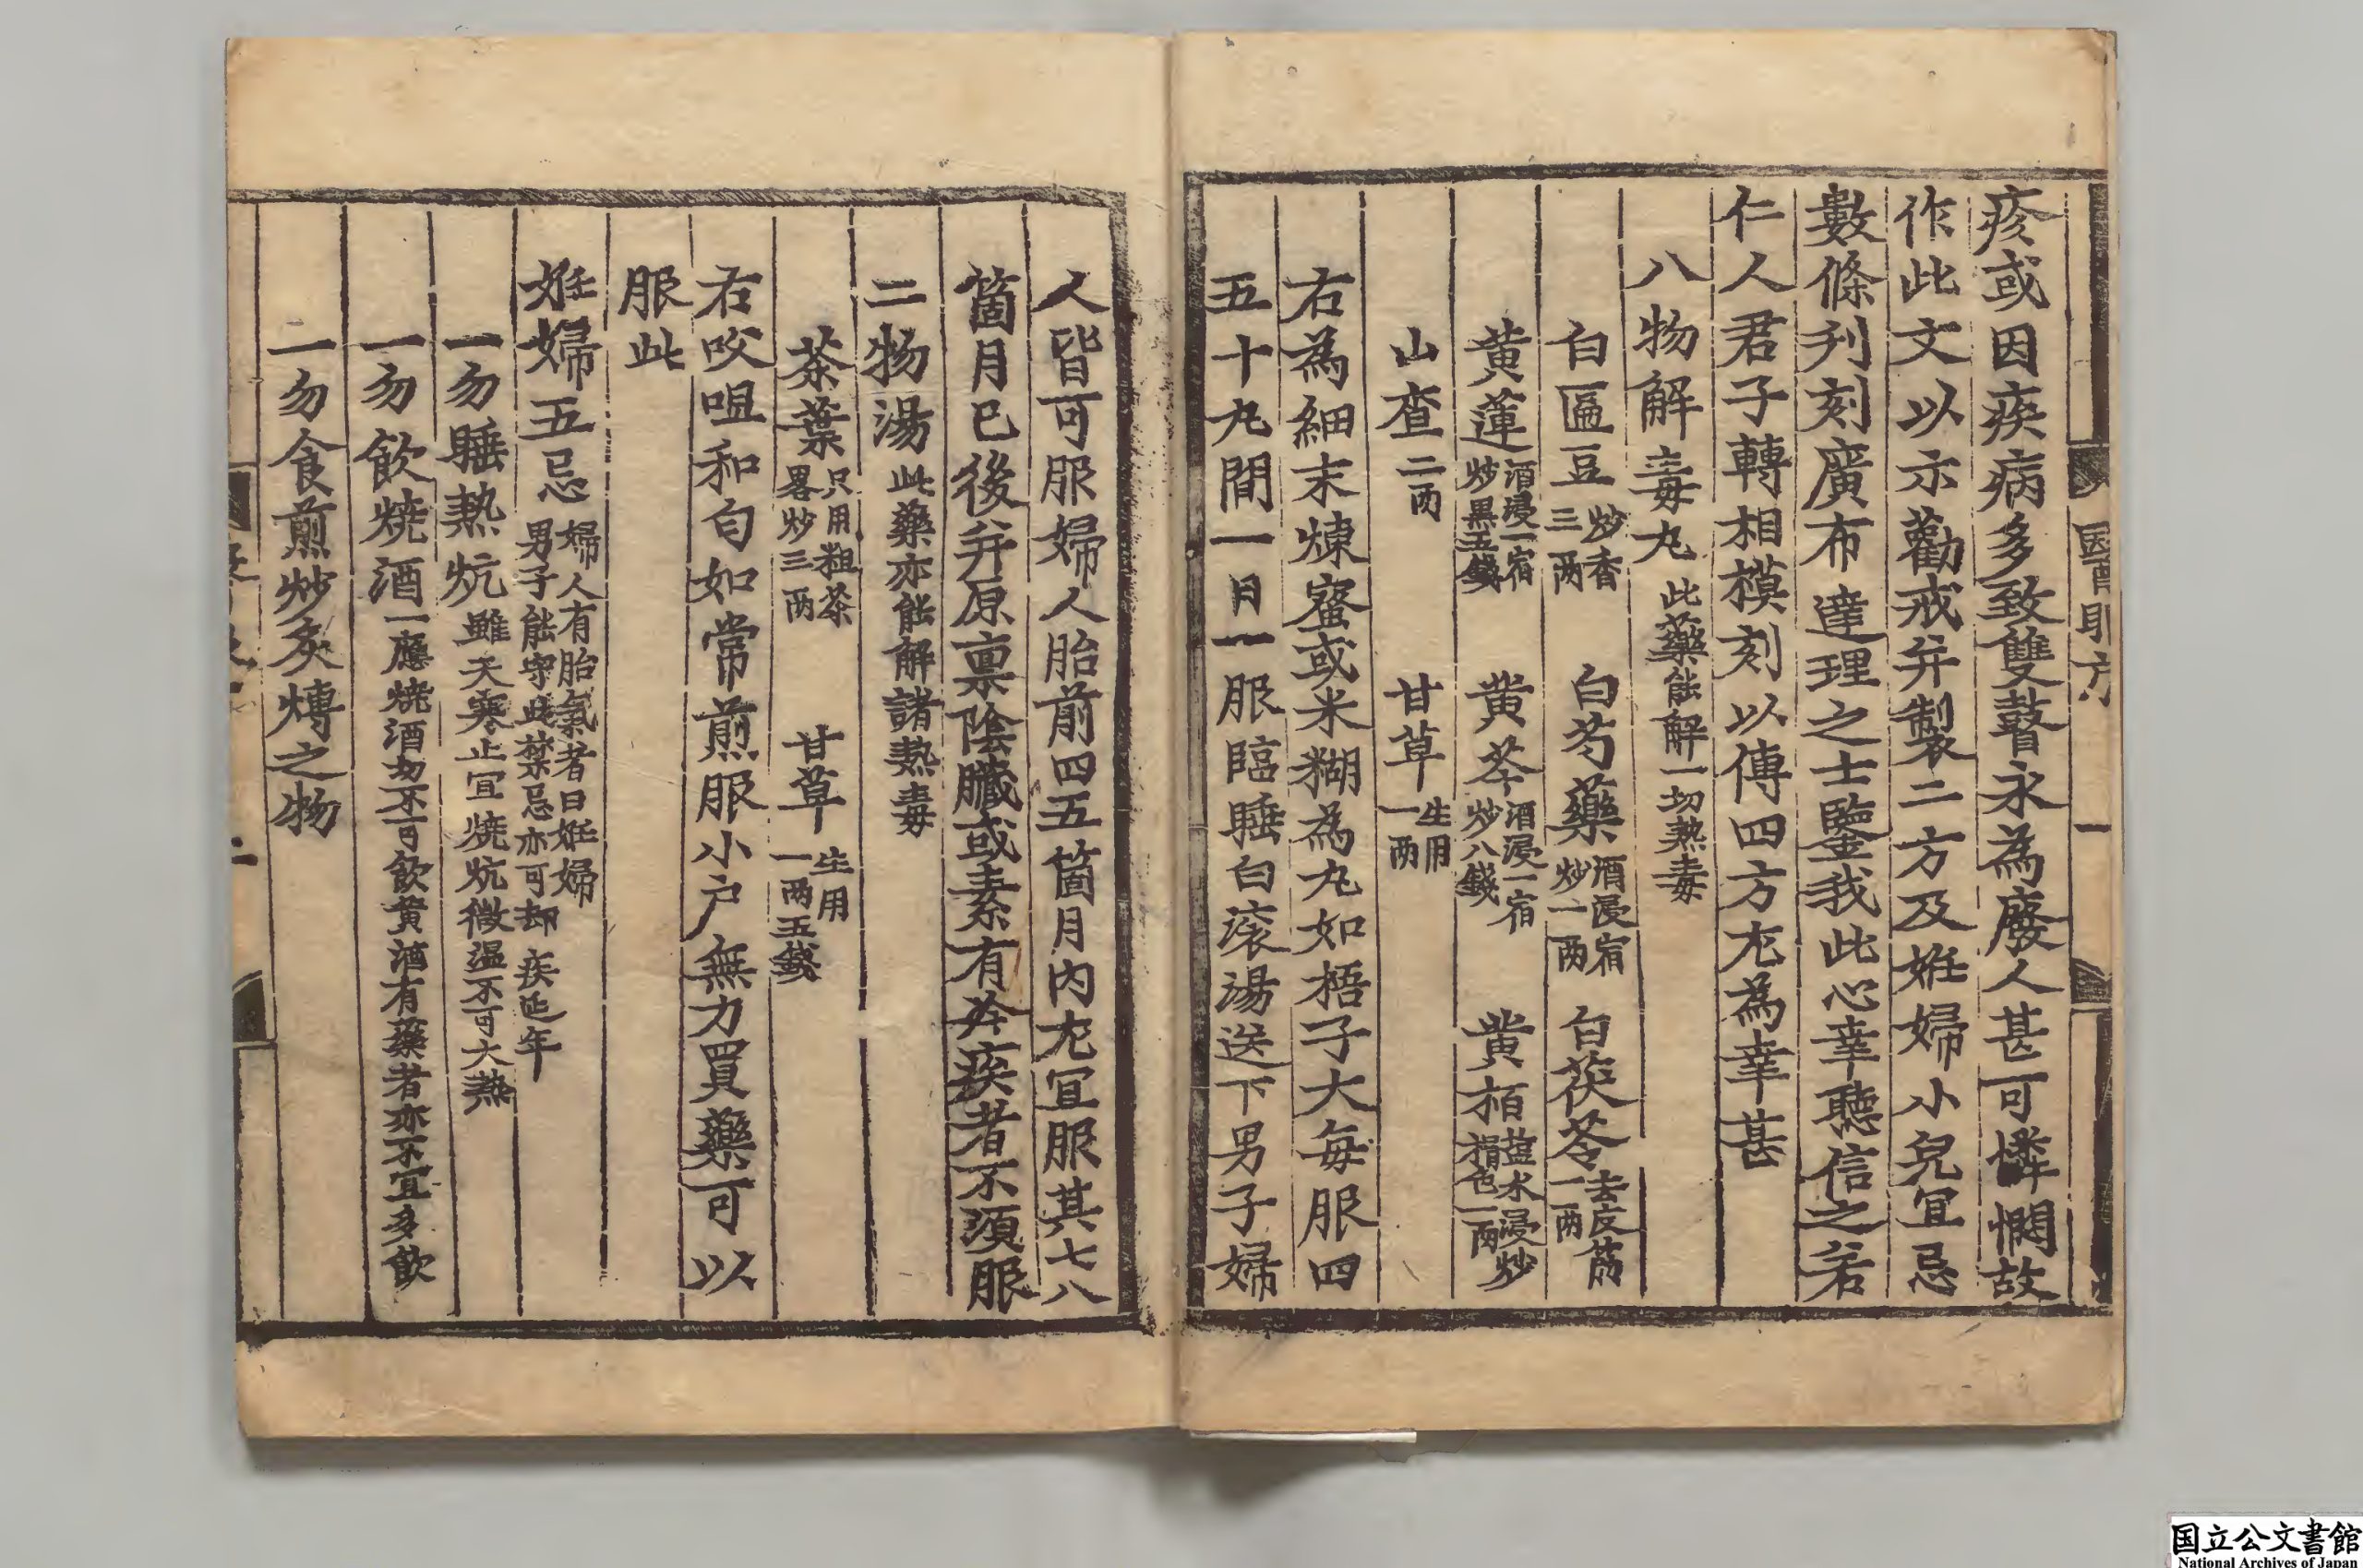 疹或因疾病多致雙瞽永為廢人甚可憐憫故
作此文以示勸戒并製二方及姙婦小兒宜忌
數條刋刻廣布達理之士鑒我此心幸聽信之若
仁人君子轉相模刻以傳四方尤為幸甚
八物解毒丸 此藥能解一切熱毒
白匾豆 炒香三两 白芍藥 酒浸宿炒一两 白茯苓 去皮筋一两
黄蓮 酒浸一宿炒黑五錢 黄芩 酒浸一宿炒八錢 黄栢 盐水浸炒褐色一两
山查二两 甘草 生用一两
右為細末煉蜜或米糊為丸如梧子大每服四
五十丸間一日一服臨睡白滚湯送下男子婦
人皆可服婦人胎前四五箇月内尤宜服其七八
箇月已後并原禀陰臟或素有冷疾者不湏服
二物湯 此藥亦能解諸熱毒
茶葉 只用粗茶畧炒三两 甘草 生用一两五錢
右咬咀和匀如常煎服小户無力買藥可以
服此
姙婦五忌 婦人有胎氣者曰姙婦男子能守此禁忌亦可却疾延年
一勿睡熱炕 雖天寒止宜燒炕微温不可大熱
一勿飲燒酒 一應燒酒切不可飲黄酒有藥者亦不宜多飲
一勿食煎炒炙煿之物
国立公文書館
National Archives of Japan